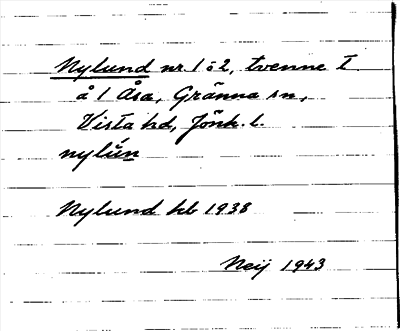 Nylund nr. 1 o 2, tvenne t
å 1 Åsa, Gränna sn,
Vista hd, Jönk. l.
nylún
Nylund kb 1938
Neij 1943